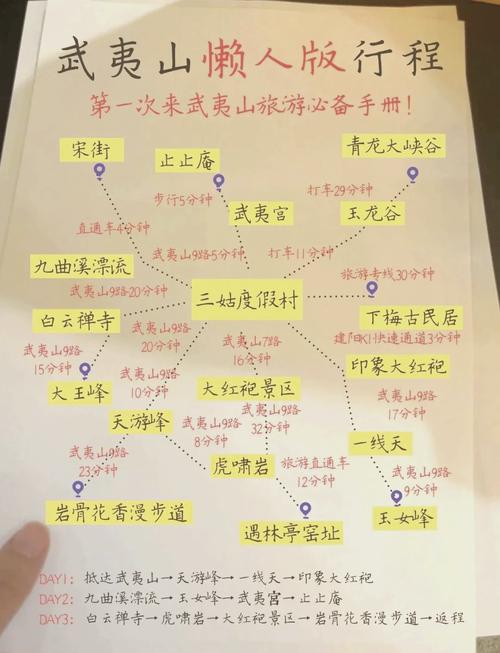 武夷山懒人版行程
第一次来武夷山旅游必备手册!
宋街
止止庵
青龙大峡谷
步行5分钟
打车29分钟
武夷宫
玉龙谷
直通车4分钟
九曲溪漂流
武夷山9路5分钟
打车11分钟
旅游专线30分钟
武夷山9路20分钟
三姑度假村
白云禅寺
下梅古民居
武夷山9路
20分钟
武夷山7路
16分钟
建阳K1快速通道3分钟
武夷山9路
15分钟
印象大红袍
大王峰
武夷山9路
10分钟
大红袍景区
武夷山9路
17分钟
天游峰
武夷山9路
8分钟
武夷山9路
32分钟
一线天
武夷山9路
23分钟
虎啸岩
旅游直通车
12分钟
武夷山9路
9分钟
岩骨花香漫步道
遇林亭窑址
玉女峰
DAY1: 抵达武夷山→天游峰→一线天→印象大红袍
DAY2: 九曲溪漂流→玉女峰→武夷宫→止止庵
DAY3: 白云禅寺→虎啸岩→大红袍景区→岩骨花香漫步道→返程